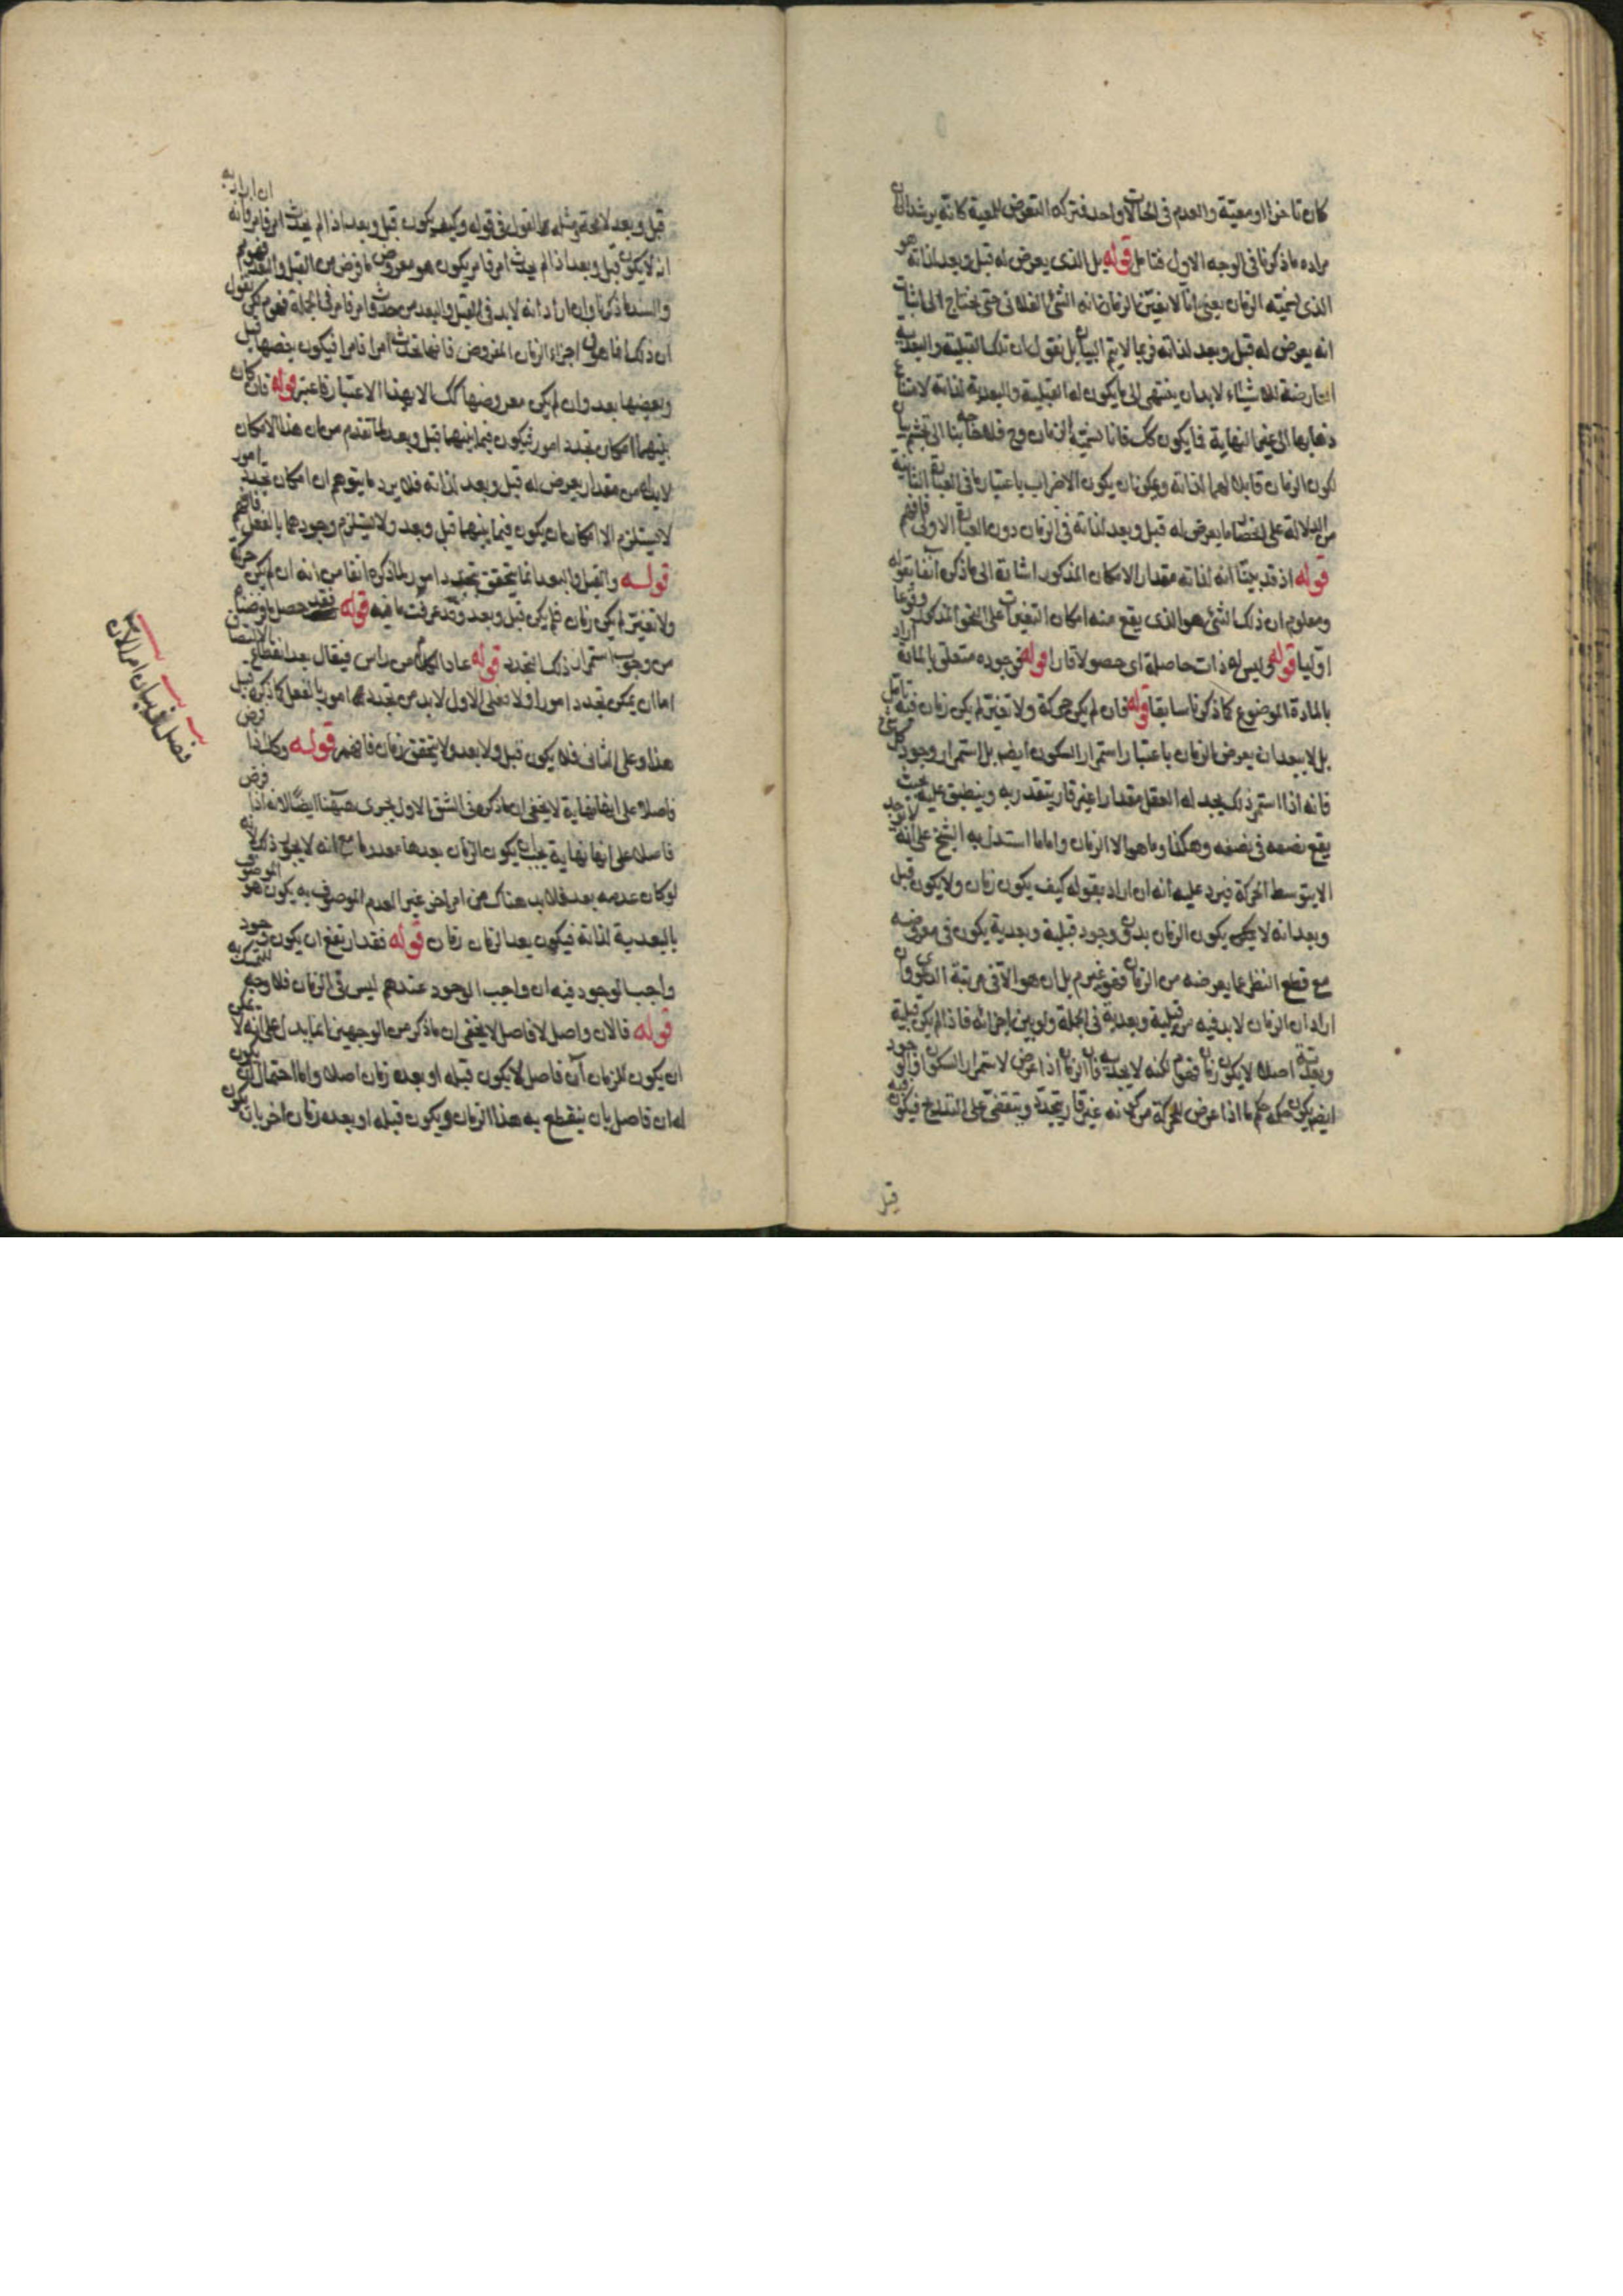 كان تاخرا او معية والعدم في الحالات واحد فترك التعرض للمعية كانه يرشد الى ان
مراده ما ذكرنا في الوجه الاول فتامل قوله بل الذي يعرض له قبل وبعد لذاته هو
الذي نسميه الزمان يعني انا لا نعني بالزمان انه الشيء الفلاني حتى يحتاج الى اثبات
انه يعرض له قبل وبعد لذاته فربما لا يتم البيان بل نقول ان تلك القبلية والبعدية
العارضة للاشياء لابد ان ينتهي الى ما يكون له القبلية والبعدية لذاته لامتناع
ذهابها الى غير النهاية فما يكون كك فانا نسميه الزمان وح فلا حاجة بنا الى تجشم بيان
كون الزمان قابلا لهما لذاته ويمكن ان يكون الاضراب باعتبار ما في العبارة الثانية
من الدلالة على اختصاص ما يعرض له قبل وبعد لذاته في الزمان دون العبارة الاولى فافهم
قوله اذ قد بينا انه لذاته مقدار الامكان المذكور اشارة الى ما ذكره آنفا بقوله
ومعلوم ان ذلك الشيء هو الذي يقع منه امكان التغيرات على النحو المذكور وقوعا
اوليا قوله وليس له ذات حاصلة اي حصولا قارا قوله في وجوده متعلق بالمادة اراد
بالمادة الموضوع كما ذكرنا سابقا قوله فان لم يكن حركة ولا تغير لم يكن زمان فيه تامل
بل لا يبعد ان يعرض الزمان باعتبار استمرار السكون ايضا بل استمرار وجود كل شيء
فانه اذا استمر ذلك يجد له العقل مقدارا غير قار يتقدر به وينطبق عليه بحيث
يقع نصفه في نصفه وهكذا وما هو الا الزمان واما ما استدل به الشيخ على انه لا يوجد
الا بتوسط الحركة فيرد عليه انه ان اراد بقوله كيف يكون زمان ولا يكون قبل
وبعد انه لا يمكن يكون الزمان بدون وجود قبلية وبعدية يكون في معروضه
مع قطع النظر عما يعرضه من الزمان فهو غير م بل ان هو الا في مرتبة الدعوى وان
اراد ان الزمان لابد فيه من قبلية وبعدية في الجملة ولو بين اجزائه فاذا لم يكن قبلية
وبعدية اصلا لا يكون زمان فهو م لكنه لا يجديه فان الزمان اذا عرض لاستمرار السكون او الوجود
ايضا يكون حكمه حكم ما اذا عرض للحركة من كونه غير قار يتجدد ويتقضى على التدريج فيكون فيه
قبل
قبل وبعد لا محة ومثله القول في قوله وكيف يكون قبل وبعد اذا لم يحدث امر فامر فانه ان اراد به
انه لا يكون قبل وبعد اذا لم يحدث امر فامر يكون هو معروض ما فرض من القبل والبعد فهو م
والسند ما ذكرنا وان اراد انه لابد في القبل والبعد من حدوث امر فامر في الجملة فهو م لكن نقول
ان ذلك انما هو في اجزاء الزمان المفروض فانها تحدث امرا فامرا فيكون بعضها قبل
وبعضها بعد وان لم يكن معروضها كك الا بهذا الاعتبار فاعتبر قوله فان كان
بينهما امكان تجدد امور فيكون فيما بينهما قبل وبعد لما تقدم من ان هذا الامكان
لابد له من مقدار يعرض له قبل وبعد لذاته فلا يرد ما يتوهم ان امكان تجدد امور
لا يستلزم الا امكان ان يكون فيما بينهما قبل وبعد ولا يستلزم وجودهما بالفعل فافهم
قوله والقبل والبعد انما يتحقق بتجدد امور لما ذكره آنفا من انه ان لم يكن حركة
ولا تغير لم يكن زمان فلم يكن قبل وبعد وقد عرفت ما فيه قوله فقد حصل ما وضنا
من وجوب استمرار ذلك التجدد قوله عاد الكلام من راس فيقال بعد انقطاع
اما ان يمكن تجدد امور او لا فعلى الاول لابد من تجدد امور بالفعل كما ذكره قبل
هذا وعلى الثاني فلا يكون قبل ولا بعد ولا يتحقق زمان فافهم قوله وكك اذا فرض
فاصلا على انها نهاية لا يخفى ان ما ذكره في الشق الاول يجري ههنا ايضا لانه اذا فرض
فاصلا على انها نهاية يجب ان يكون الزمان بعدها معدوما مع انه لا يجوز ذلك لانه
لو كان عدمه بعد فلابد هناك من امر اخر غير العدم الموصوف به يكون هو الموصوف
بالبعدية لذاته فيكون بعد الزمان زمان قوله فقد ارتفع ان يكون وجود
واجب الوجود فيه ان واجب الوجود عندهم ليس في الزمان فلا وجه للتمسك به
قوله فالان واصل لا فاصل لا يخفى ان ما ذكر من الوجهين انما يدل على انه لا يمكن
ان يكون للزمان آن فاصل لا يكون قبله او بعده زمان اصلا واما احتمال ان يكون
له آن فاصل بان ينقطع به هذا الزمان ويكون قبله او بعده زمان اخر بان يكون
فصل في بيان امر الان